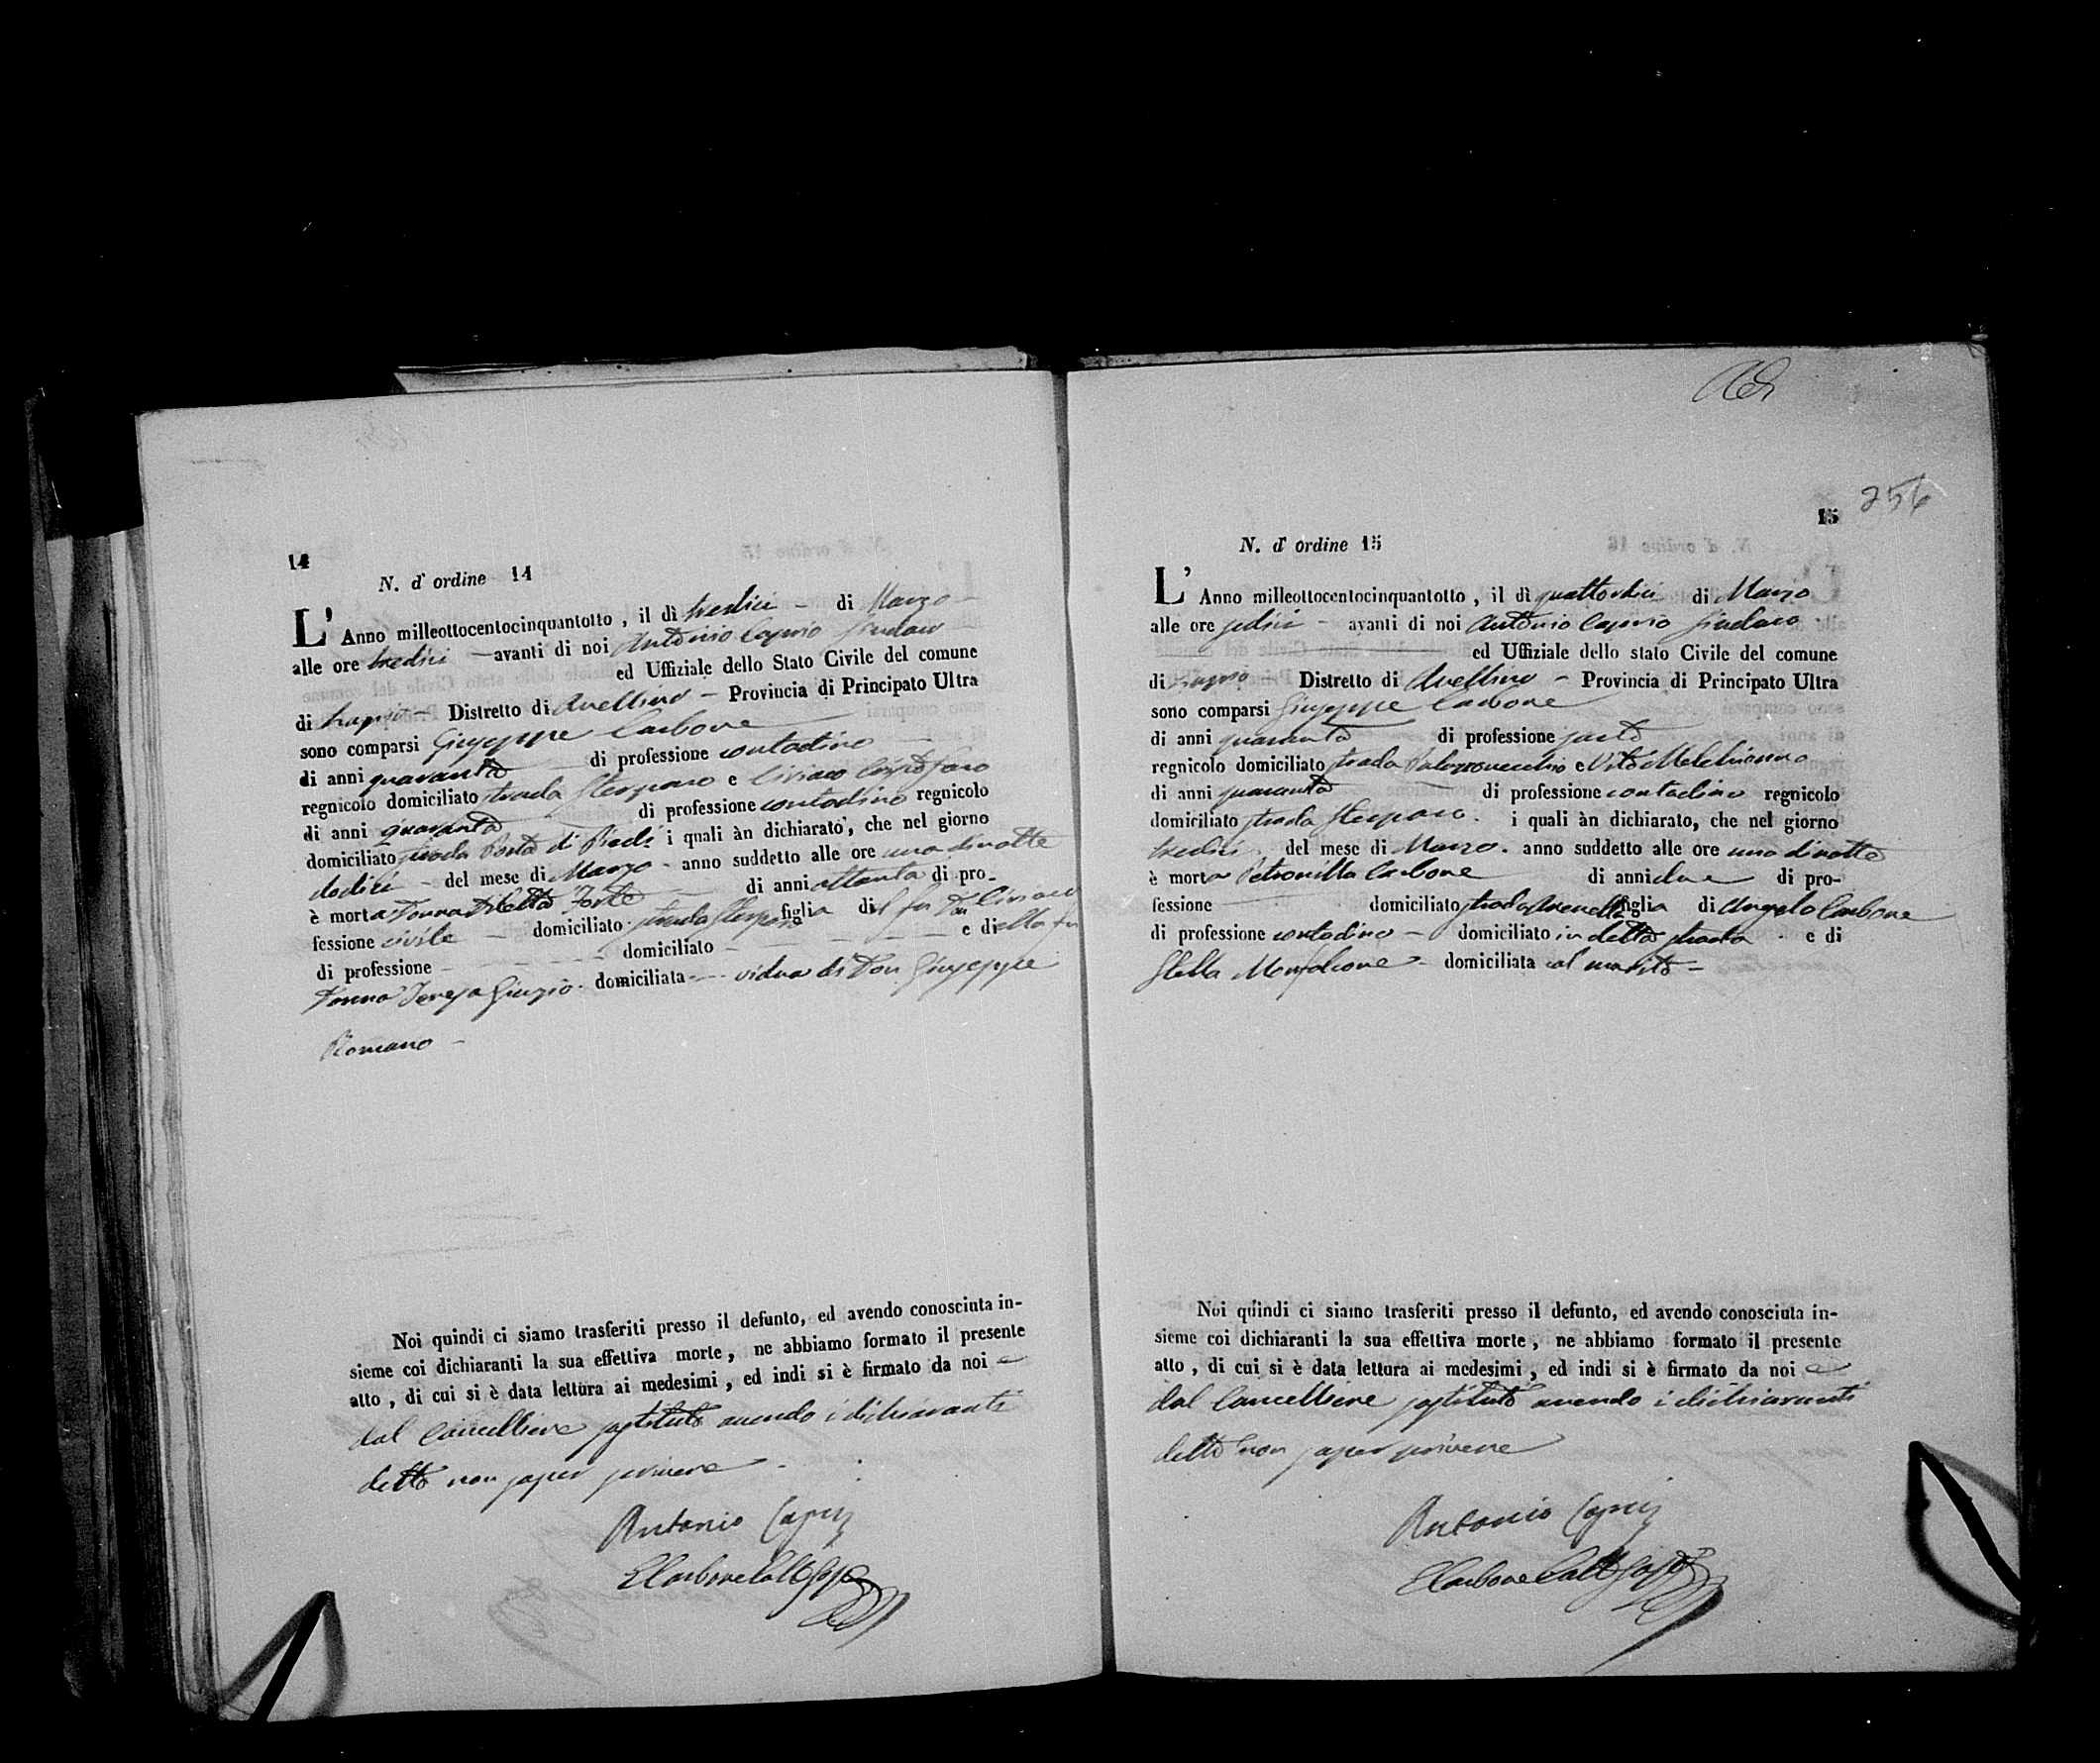 14
N. d' ordine 14
L' Anno milleottocentocinquantotto, il dì tredici — di Marzo
alle ore tredici — avanti di noi Antonio Caprio Sindaco
ed Uffiziale dello Stato Civile del comune
di — Distretto di Avellino — Provincia di Principato Ultra
sono comparsi Giuseppe Carbone
di anni quaranta di professione contadino
regnicolo domiciliato strada e Ciriaco Cristofaro
di anni quaranta di professione contadino regnicolo
domiciliato strada Porta di i quali àn dichiarato, che nel giorno
dodici — del mese di Marzo — anno suddetto alle ore una di notte
è morta Donna Forte di anni ottanta di pro-
fessione civile — domiciliato strada figlia del fu Don Ciriaco
di professione — domiciliato — e di ella fu
Donna Teresa domiciliata — vidua di Don Giuseppe
Romano —
Noi quindi ci siamo trasferiti presso il defunto, ed avendo conosciuta in-
sieme coi dichiaranti la sua effettiva morte, ne abbiamo formato il presente
atto, di cui si è data lettura ai medesimi, ed indi si è firmato da noi e
dal Cancelliere sostituto avendo i dichiaranti
detto non saper scrivere
Antonio Caprio
15
256
N. d' ordine 15
L' Anno milleottocentocinquantotto, il dì quattordici di Marzo
alle ore sedici — avanti di noi Antonio Caprio Sindaco
ed Uffiziale dello stato Civile del comune
di Distretto di Avellino — Provincia di Principato Ultra
sono comparsi Giuseppe Carbone
di anni quaranta di professione sarto
regnicolo domiciliato strada Palazzovecchio e Vito Melchionno
di anni quaranta di professione contadino regnicolo
domiciliato strada i quali àn dichiarato, che nel giorno
tredici del mese di Marzo anno suddetto alle ore una di notte
è morta Petronilla Carbone di anni due di pro-
fessione — domiciliato strada figlia di Angelo Carbone
di professione contadino — domiciliato in detta strada e di
Stella Monfalcone domiciliata col marito —
Noi quindi ci siamo trasferiti presso il defunto, ed avendo conosciuta in-
sieme coi dichiaranti la sua effettiva morte, ne abbiamo formato il presente
atto, di cui si è data lettura ai medesimi, ed indi si è firmato da noi e
dal Cancelliere sostituto avendo i dichiaranti
detto non saper scrivere
Antonio Caprio